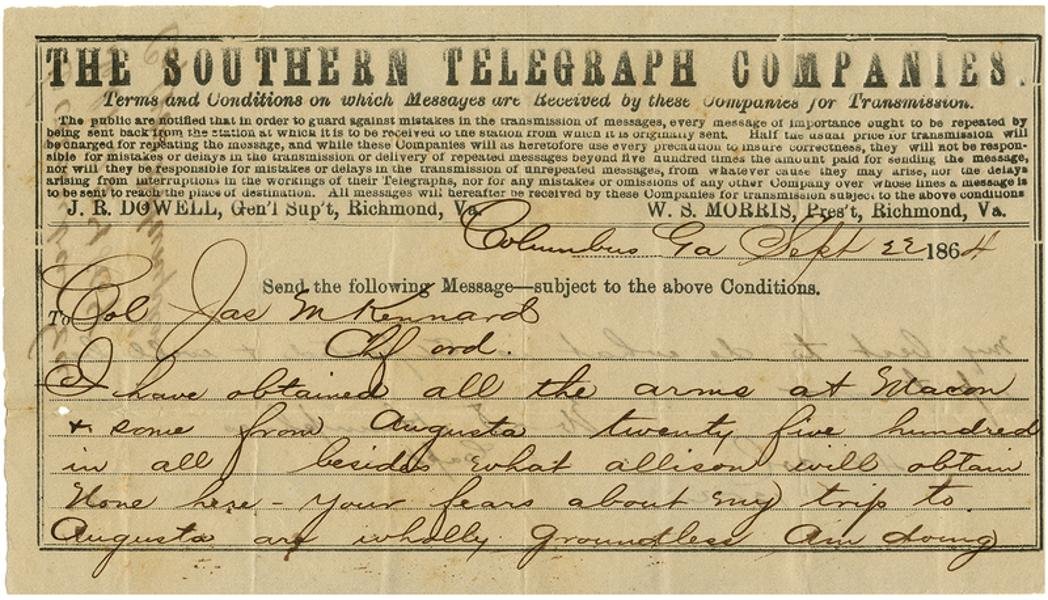 THE SOUTHERN TELEGRAPH COMPANIES.
Terms and Conditions on which Messages are Received by these Companies for Transmission.
The public are notified that in order to guard against mistakes in the transmission of messages, every message of importance ought to be repeated by
being sent back from the station at which it is to be received to the station from which it is originally sent. Half the usual price for transmission will
be charged for repeating the message, and while these Companies will as heretofore use every precaution to insure correctness, they will not be respon-
sible for mistakes or delays in the transmission or delivery of repeated messages beyond five hundred times the amount paid for sending the message,
nor will they be responsible for mistakes or delays in the transmission of unrepeated messages, from whatever cause they may arise, nor the delays
arising from interruptions in the workings of their Telegraphs, nor for any mistakes or omissions of any other Company over whose lines a message is
to be sent to reach the place of destination. All messages will hereafter be received by these Companies for transmission subject to the above conditions
J. R. DOWELL, Gen'l Sup't, Richmond, Va. W. S. MORRIS, Pres't, Richmond, Va.
Columbus Ga Sept 22 1864
Send the following Message—subject to the above Conditions.
To Col Jas M Kennard
Chf ord.
I have obtained all the arms at Macon
& some from Augusta twenty five hundred
in all besides what allison will obtain
None here - your fears about my trip to
Augusta are wholly groundless Am doing